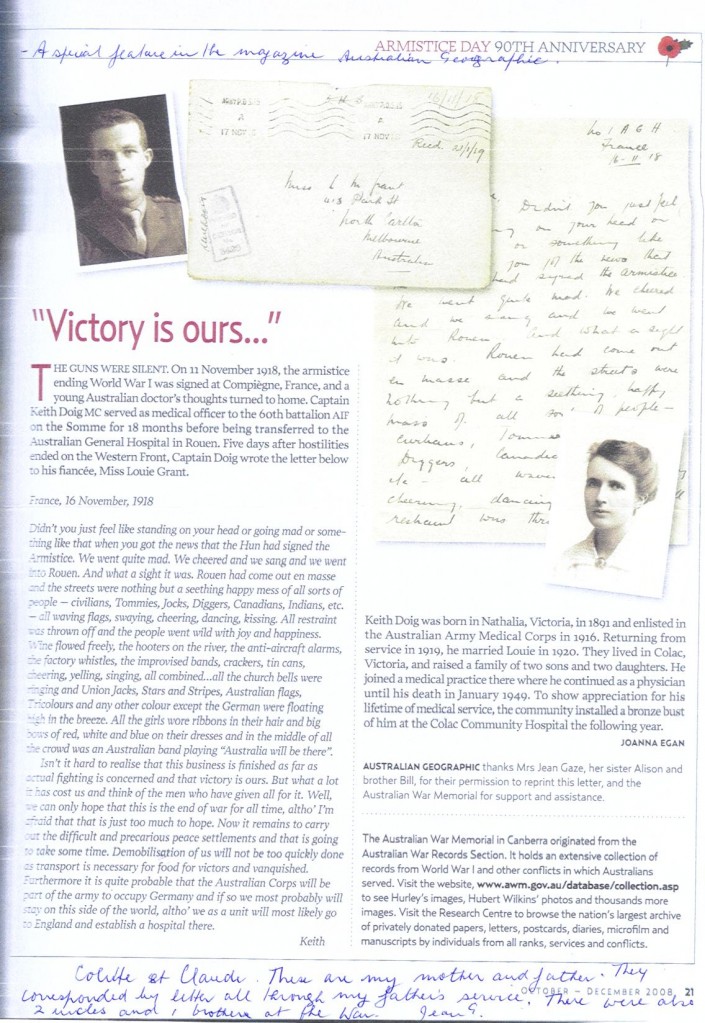 ARMISTICE DAY 90TH ANNIVERSARY
- A special feature in the magazine Australian Geographic.
17 NOV
17 NOV
16/11/18
Recd. 23/1/19
Miss L M Grant
413 St
North Carlton
Melbourne
Australia
No 1 A G H
France
16-11-18
Didn't you just feel
on your head or
or something like
you got the news that
had signed the Armistice
We went quite mad. We cheered
and we sang and we went
into Rouen. And what a sight
it was. Rouen had come out
en masse and the streets were
nothing but a seething happy
mass of all sorts of people –
civilians, Tommies
Diggers, Canadians
etc – all waving
cheering, dancing
restraint was thr
"Victory is ours..."
THE GUNS WERE SILENT. On 11 November 1918, the armistice
ending World War I was signed at Compiègne, France, and a
young Australian doctor's thoughts turned to home. Captain
Keith Doig MC served as medical officer to the 60th battalion AIF
on the Somme for 18 months before being transferred to the
Australian General Hospital in Rouen. Five days after hostilities
ended on the Western Front, Captain Doig wrote the letter below
to his fiancée, Miss Louie Grant.
France, 16 November, 1918
Didn't you just feel like standing on your head or going mad or some-
thing like that when you got the news that the Hun had signed the
Armistice. We went quite mad. We cheered and we sang and we went
into Rouen. And what a sight it was. Rouen had come out en masse
and the streets were nothing but a seething happy mess of all sorts of
people – civilians, Tommies, Jocks, Diggers, Canadians, Indians, etc.
– all waving flags, swaying, cheering, dancing, kissing. All restraint
was thrown off and the people went wild with joy and happiness.
Wine flowed freely, the hooters on the river, the anti-aircraft alarms,
the factory whistles, the improvised bands, crackers, tin cans,
cheering, yelling, singing, all combined...all the church bells were
ringing and Union Jacks, Stars and Stripes, Australian flags,
Tricolours and any other colour except the German were floating
high in the breeze. All the girls wore ribbons in their hair and big
bows of red, white and blue on their dresses and in the middle of all
the crowd was an Australian band playing "Australia will be there".
Isn't it hard to realise that this business is finished as far as
actual fighting is concerned and that victory is ours. But what a lot
it has cost us and think of the men who have given all for it. Well,
we can only hope that this is the end of war for all time, altho' I'm
afraid that that is just too much to hope. Now it remains to carry
out the difficult and precarious peace settlements and that is going
to take some time. Demobilisation of us will not be too quickly done
as transport is necessary for food for victors and vanquished.
Furthermore it is quite probable that the Australian Corps will be
part of the army to occupy Germany and if so we most probably will
stay on this side of the world, altho' we as a unit will most likely go
to England and establish a hospital there.
Keith
Keith Doig was born in Nathalia, Victoria, in 1891 and enlisted in
the Australian Army Medical Corps in 1916. Returning from
service in 1919, he married Louie in 1920. They lived in Colac,
Victoria, and raised a family of two sons and two daughters. He
joined a medical practice there where he continued as a physician
until his death in January 1949. To show appreciation for his
lifetime of medical service, the community installed a bronze bust
of him at the Colac Community Hospital the following year.
JOANNA EGAN
AUSTRALIAN GEOGRAPHIC thanks Mrs Jean Gaze, her sister Alison and
brother Bill, for their permission to reprint this letter, and the
Australian War Memorial for support and assistance.
The Australian War Memorial in Canberra originated from the
Australian War Records Section. It holds an extensive collection of
records from World War I and other conflicts in which Australians
served. Visit the website, www.awm.gov.au/database/collection.asp
to see Hurley's images, Hubert Wilkins' photos and thousands more
images. Visit the Research Centre to browse the nation's largest archive
of privately donated papers, letters, postcards, diaries, microfilm and
manuscripts by individuals from all ranks, services and conflicts.
Colette et Claude. These are my mother and father. They
OCTOBER – DECEMBER 2008 21
corresponded by letter all through my father's service. There were also
2 uncles and 1 brother at the War. Jean G.